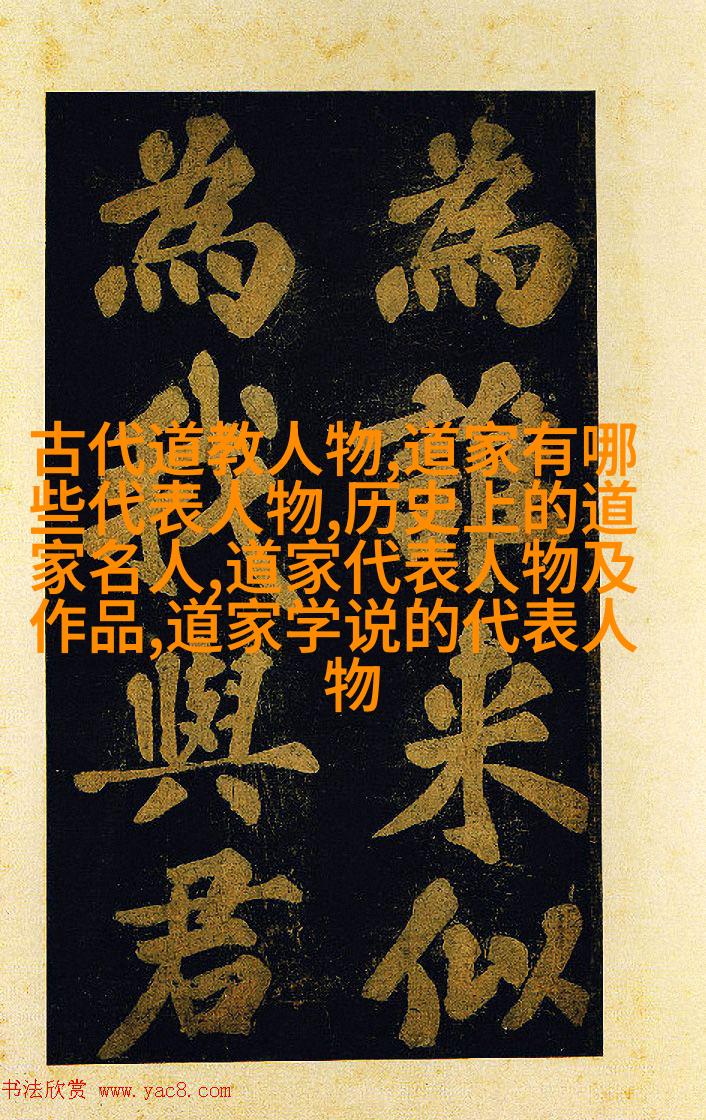 為誰来似
為我與君
古代道教人物,道家有哪
些代表人物,历史上的道
家名人,道家代表人物及
作品,道家学说的代表人
物
书法欣赏 www.yac8.com